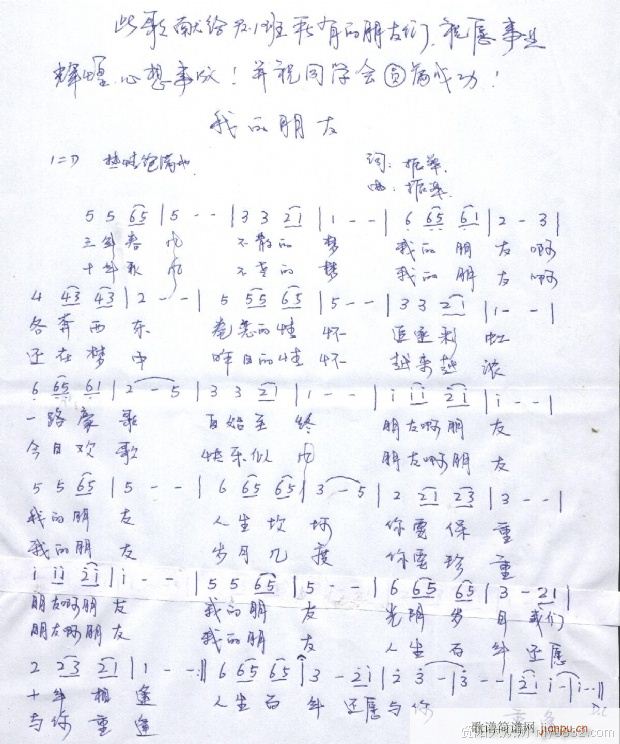 此歌献给 班所有的朋友们,祝愿事业
辉煌,心想事成!并祝同学会圆满成功!
我的朋友
1=D 热情饱满地 词:振华
曲:振华
5 5 65 | 5 - - | 3 3 21 | 1 - - | 6 65 61 | 2 - 3 |
三年春风 不散的梦 我的朋友啊
十年歌风 不老的梦 我的朋友啊
4 43 43 | 2 - - | 5 55 65 | 5 - - | 3 3 21 | 1 - - |
各奔西东 的情怀 追逐彩虹
还在梦中 昨日的情怀 越来越浓
6 65 61 | 2 - 5 | 3 3 21 | 1 - - | i ii 2i | i - - |
一路高歌 自始至终 朋友啊朋友
今日欢歌 快乐似风 朋友啊朋友
5 5 65 | 5 - - | 6 65 65 | 3 - 5 | 2 21 23 | 3 - - |
我的朋友 人生坎坷 你要保重
我的朋友 岁月几度 你要珍重
i ii 2i | i - - | 5 5 65 | 5 - - | 6 65 65 | 3 - 21 |
朋友啊朋友 我的朋友 光阴岁月 我们
朋友啊朋友 我的朋友 人生百年 还愿
2 23 21 | 1 - - :|| 6 65 65 | 3 - 2i | 2 3 - | 3 - - | - 2i i - | i - - ||
十年相逢 人生百年 还愿与你 重逢
与你重逢 D.C
歌谱简谱网 jianpu.cn